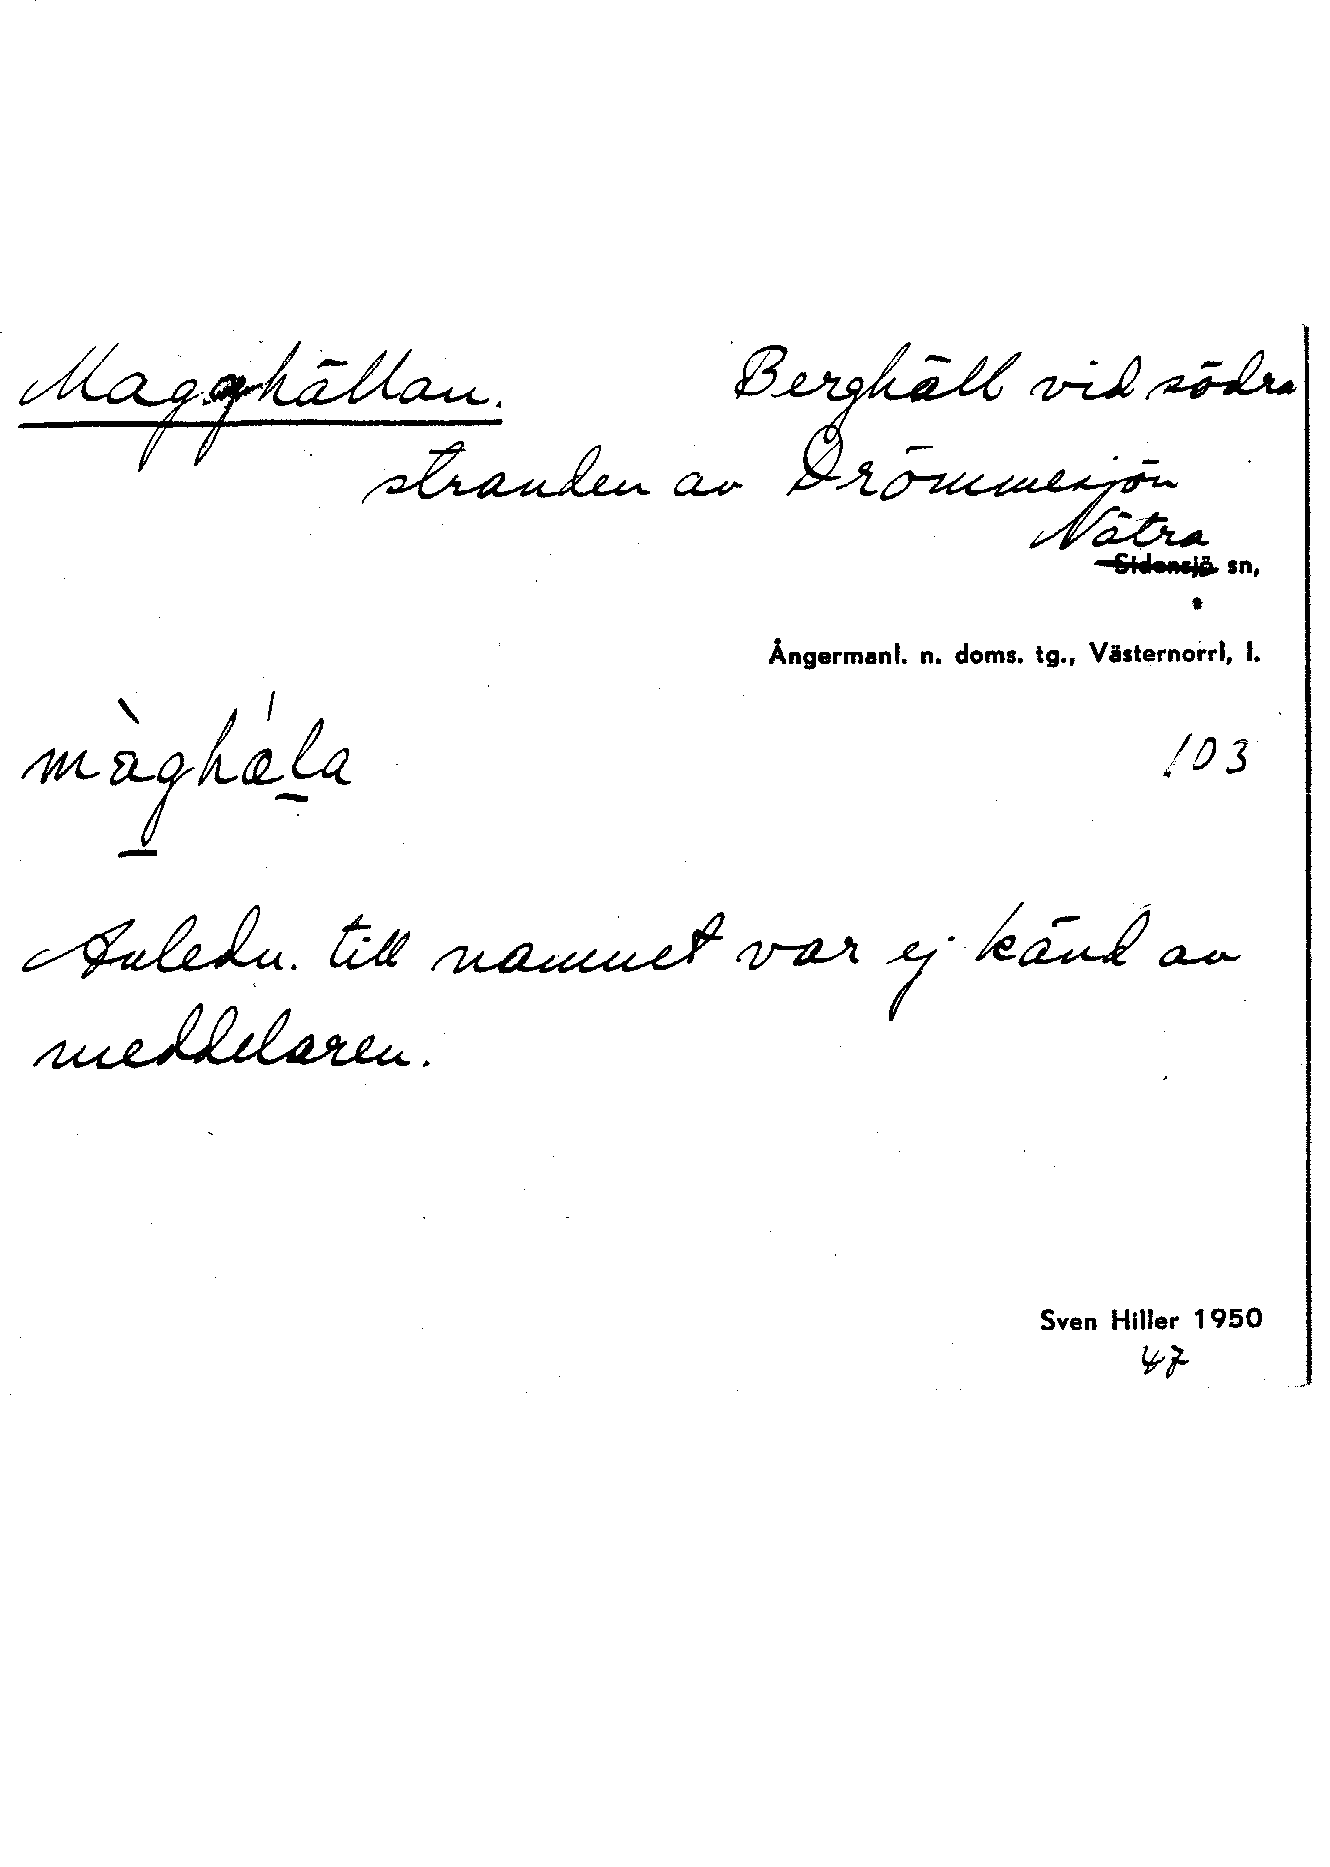 Magghällan. Berghäll vid södra
stranden av Drömmesjön
Nätra
Sidensjö sn,
Ångermanl. n. doms. tg., Västernorrl, l.
màghǽla 103
Anledn. till namnet var ej känd av
meddelaren.
Sven Hiller 1950
47